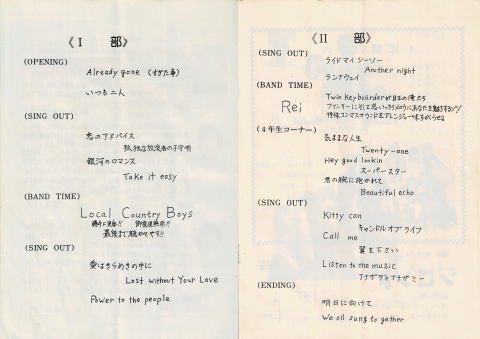 《Ⅰ 部》
(OPENING)
Already gone (すぎた事)
いつも二人
(SING OUT)
恋のアドバイス
孤独な放浪者の子守唄
銀河のロマンス
Take it easy
(BAND TIME)
Local Country Boys
最後まで聴かせやす!!
(SING OUT)
愛はきらめきの中に
Lost without Your Love
Power to the people
《Ⅱ 部》
(SING OUT)
ライドマイシーソー
Another night
ランナウェイ
(BAND TIME)
Twin Keyboarderが日本の俺たち
Rei
(4年生コーナー)
気ままな人生
Twenty-one
Hey good lookin
スーパースター
君の腕に抱かれて
Beautiful echo
(SING OUT)
Kitty can
キャンドルオブライフ
Call me
翼を下さい
Listen to the music
アナザデイアナザミー
(ENDING)
明日に向けて
We all sung to gether